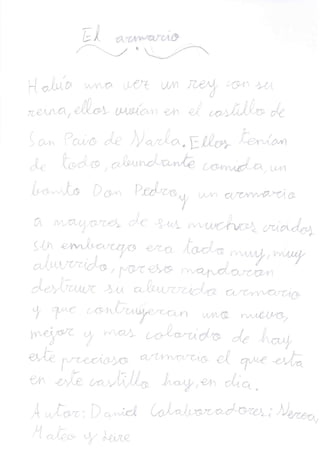 El armario
Había una vez un rey con su
reina, ellos vivían en el castillo de
San Paio de Narla. Ellos tenían
de todo, abundante comida, un
bonito Don Pedro, y un armario
a mayores de sus muchos criados
sin embargo era todo muy, muy
aburrido, por eso mandaran
destruir su aburrida armario
y que contruyeran uno nuevo,
mejor y mas colorido de hay
este precioso armario el que esta
en este castillo hay, en dia.
Autor: Daniel Colaboradores: Nerea,
Mateo y